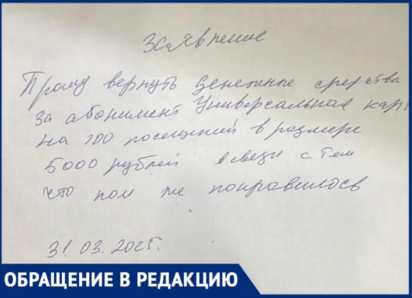 Заявление
Прошу вернуть денежные средства
за абонимент Универсальная кар
на 100 посещений в размере
5000 рублей в свези с тем
что нам не понравилось
31.03.2025г.
ОБРАЩЕНИЕ В РЕДАКЦИЮ